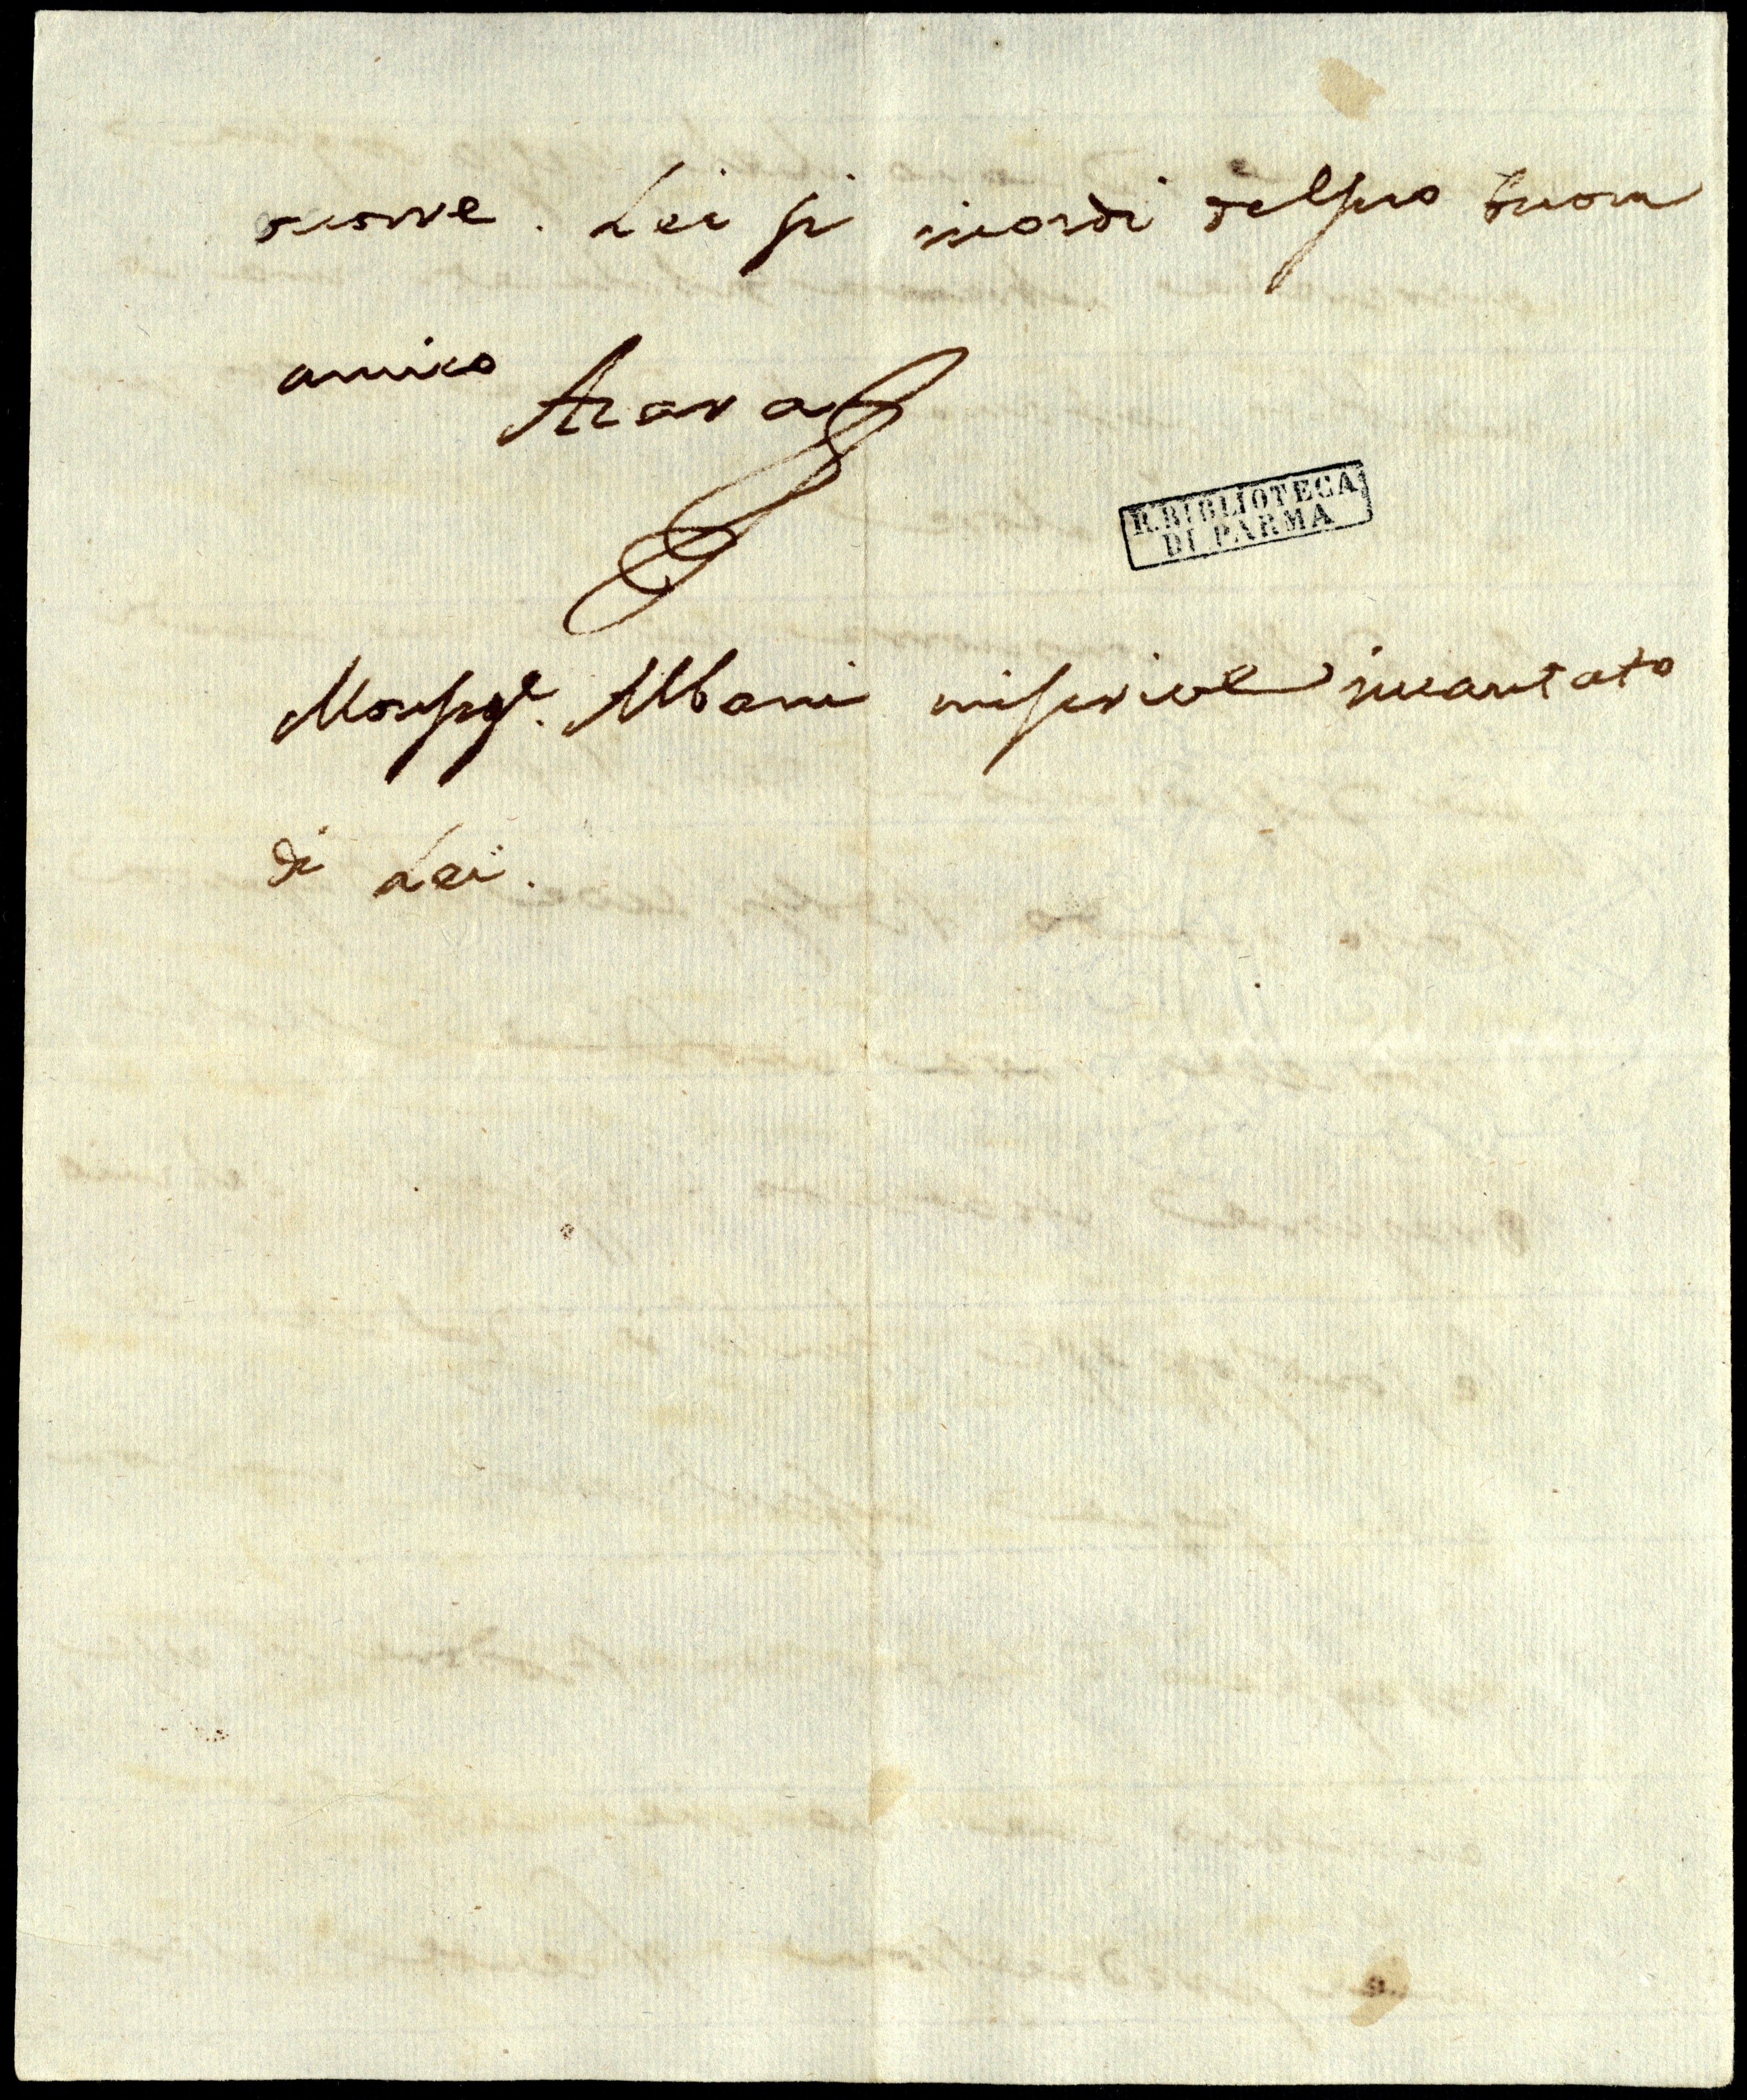 occorre. Lei si ricordi del suo buon
amico Azara
R. BIBLIOTECA
DI PARMA
Monsigr. Albani mi scrive incantato
di Lei.